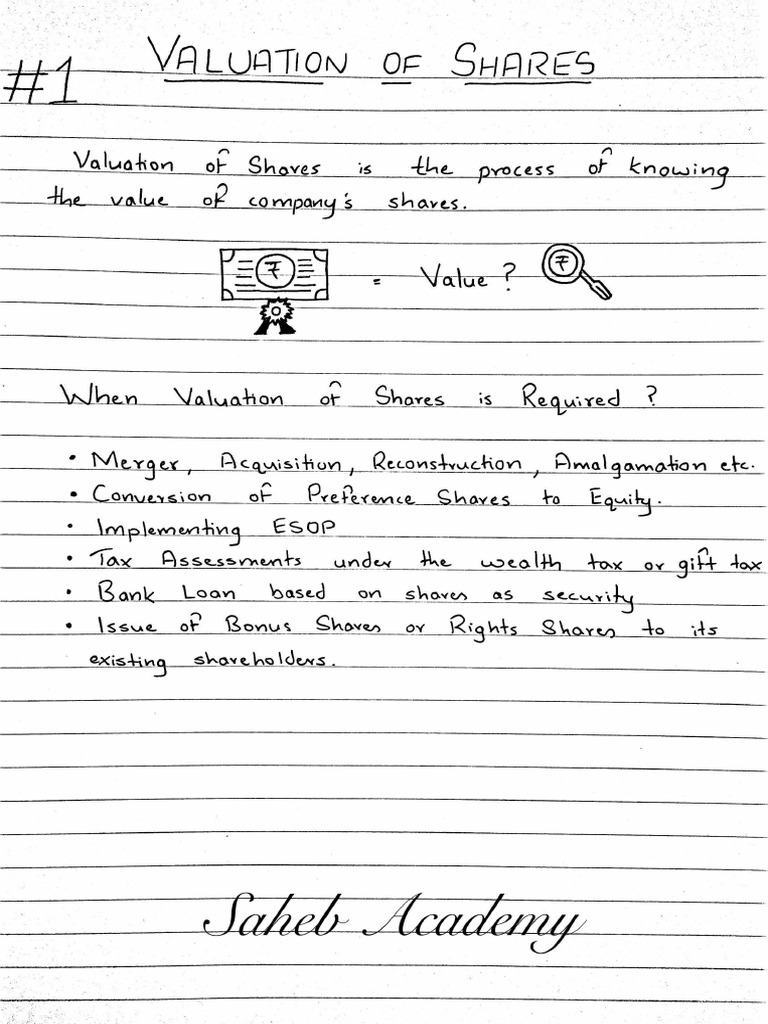 #1
VALUATION OF SHARES
Valuation of Shares is the process of knowing
the value of company's shares.
₹ = Value ? ₹
When Valuation of Shares is Required ?
• Merger, Acquisition, Reconstruction, Amalgamation etc.
• Conversion of Preference Shares to Equity.
• Implementing ESOP
• Tax Assessments under the wealth tax or gift tax
• Bank Loan based on shares as security
• Issue of Bonus Shares or Rights Shares to its
existing shareholders.
Saheb Academy